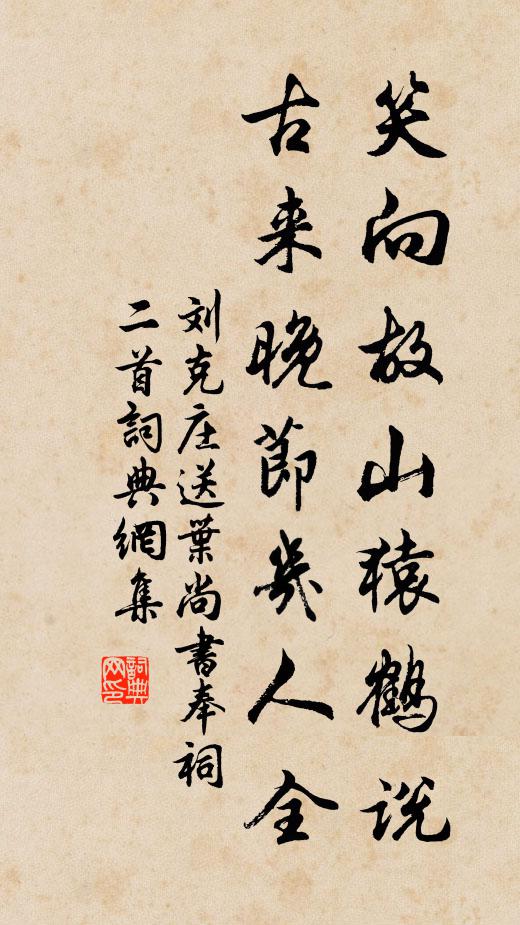 笑向故山猿鹤説
古来晚節幾人全
刘克庄送葉尚書奉祠
二首詞典網集
詞典网印